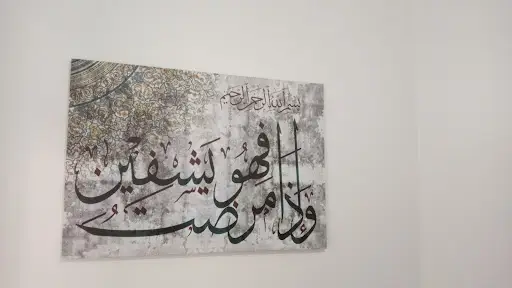 بسم الله الرحمن الرحيم
وَإِذَا مَرِضْتُ فَهُوَ يَشْفِينِ